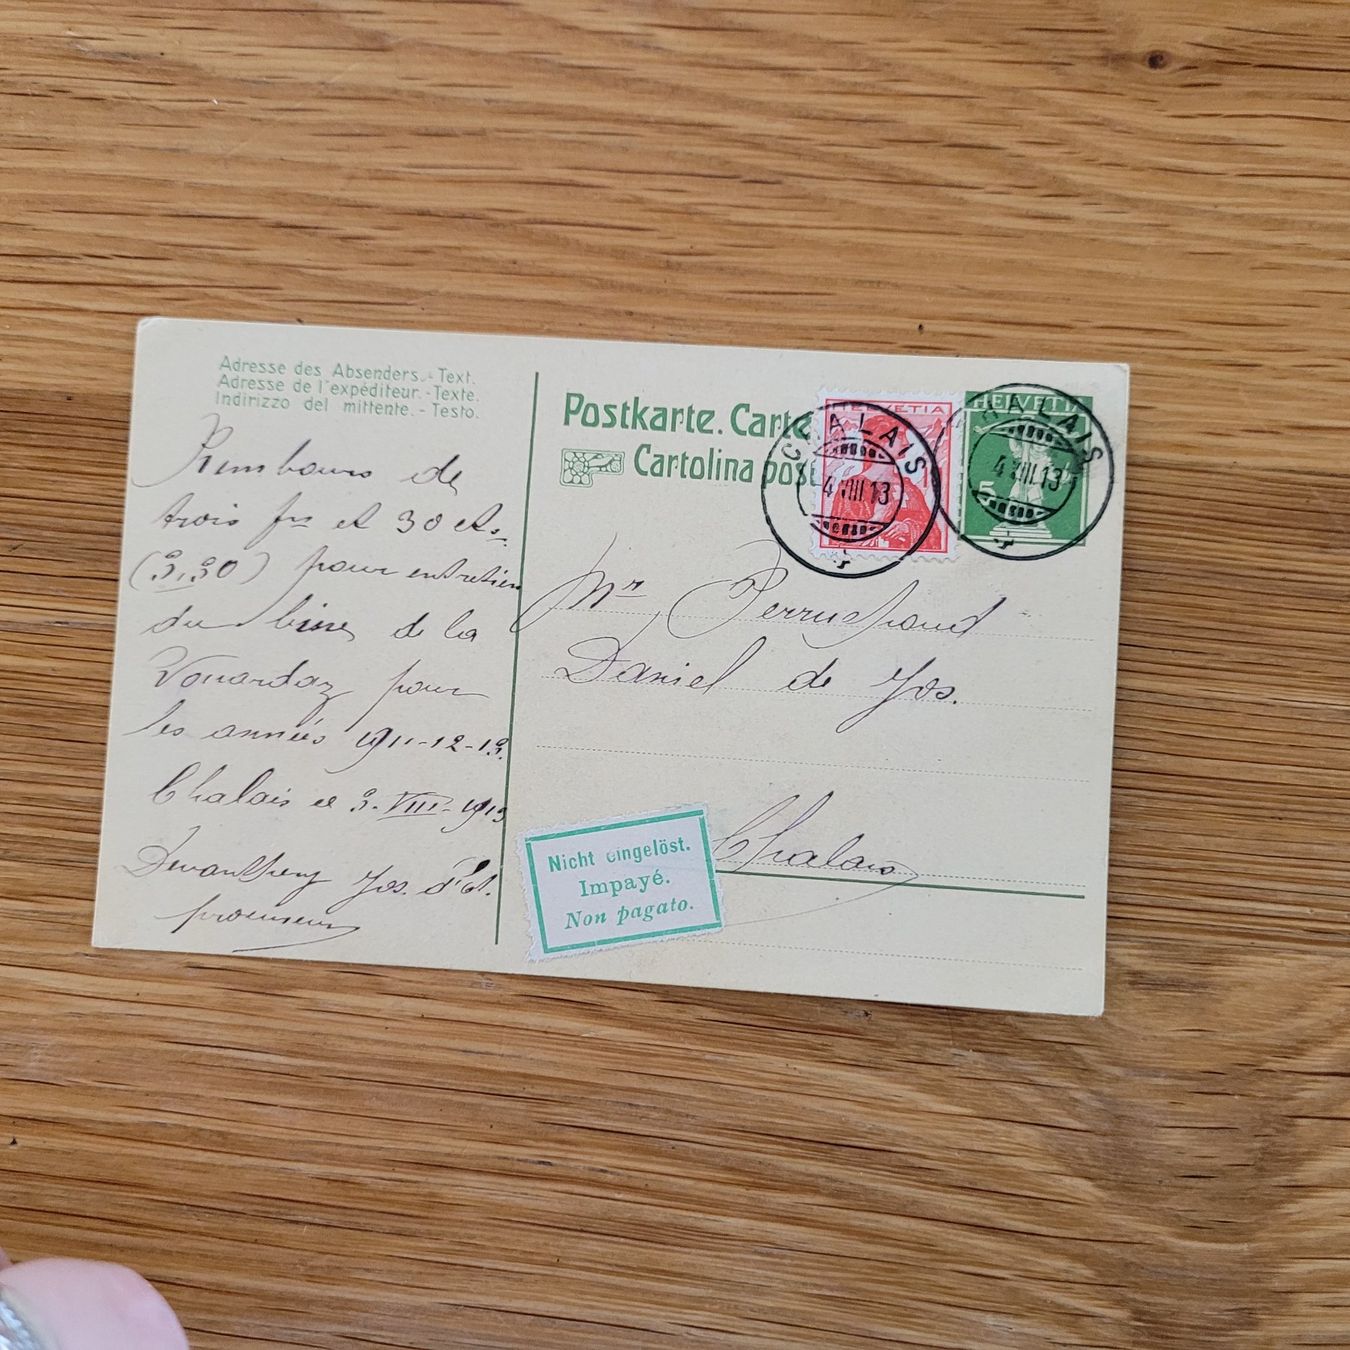 Adresse des Absenders. - Text.
Adresse de l'expéditeur. - Texte.
Indirizzo del mittente. - Testo.
Rembours de
trois frs et 30 cts.
(3,30) pour entretien
du bisse de la
Vouardaz pour
les années 1911-12-13.
Chalais le 3. VIII. 1913
Devanthéry Jos. d'Et.
procureur
Postkarte. Carte
Cartolina post
HELVETIA
HELVETIA
5
CHALAIS
4 VIII.13
CHALAIS
4 VIII.13
Mr Perruchoud
Daniel de Jos.
Chalais
Nicht eingelöst.
Impayé.
Non pagato.